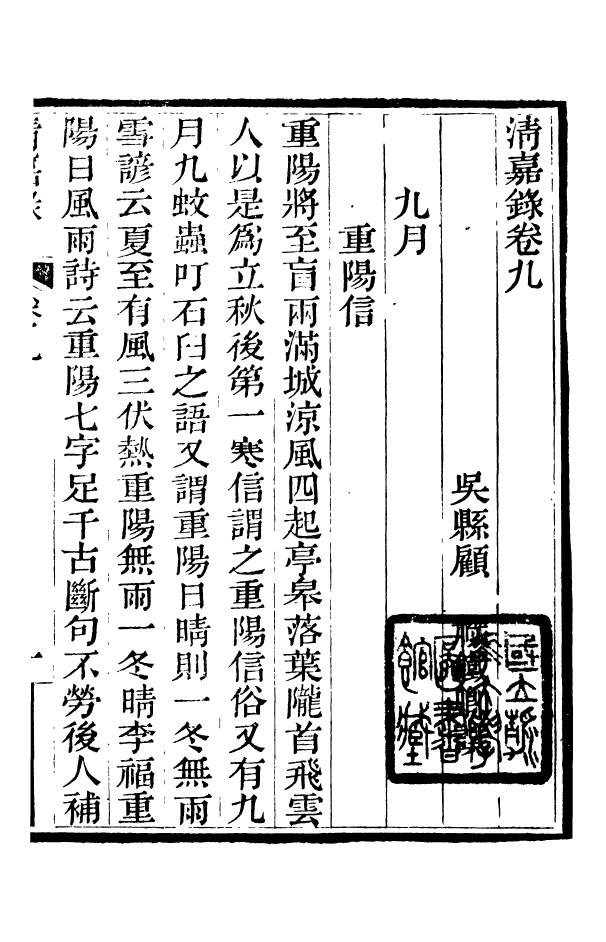 清嘉錄卷九
吳縣顧
九月
重陽信
重陽將至盲雨滿城涼風四起亭皋落葉隴首飛雲
人以是爲立秋後第一寒信謂之重陽信俗又有九
月九蚊蟲叮石臼之語又謂重陽日晴則一冬無雨
雪諺云夏至有風三伏熱重陽無雨一冬晴李福重
陽日風雨詩云重陽七字足千古斷句不勞後人補